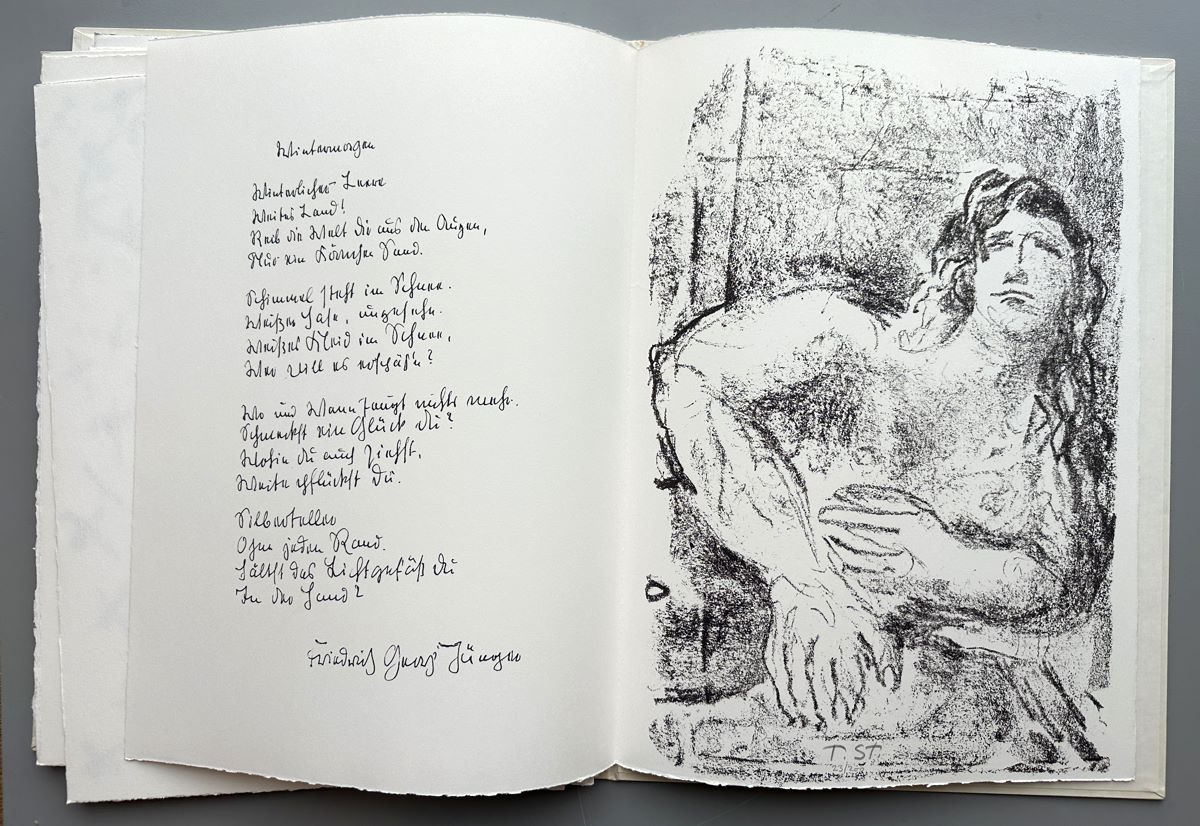 Wintermorgen
Winterlicher Leere
Weites Land!
Reib die Welt dir aus den Augen,
Nur ein Körnchen Sand.
Schimmel steht im Schnee.
Weißer Hase, ungesehn.
Weißes Kleid im Schnee,
Wer will es erspähn?
Wo und Wann taugt nichts mehr.
Schmeckst ein Glück du?
Wohin du auch ziehst,
Weite pflückst du.
Silberteller
Ohne jeden Rand.
Hältst das Lichtgefäß du
In der Hand?
Friedrich Georg Jünger
T. ST.